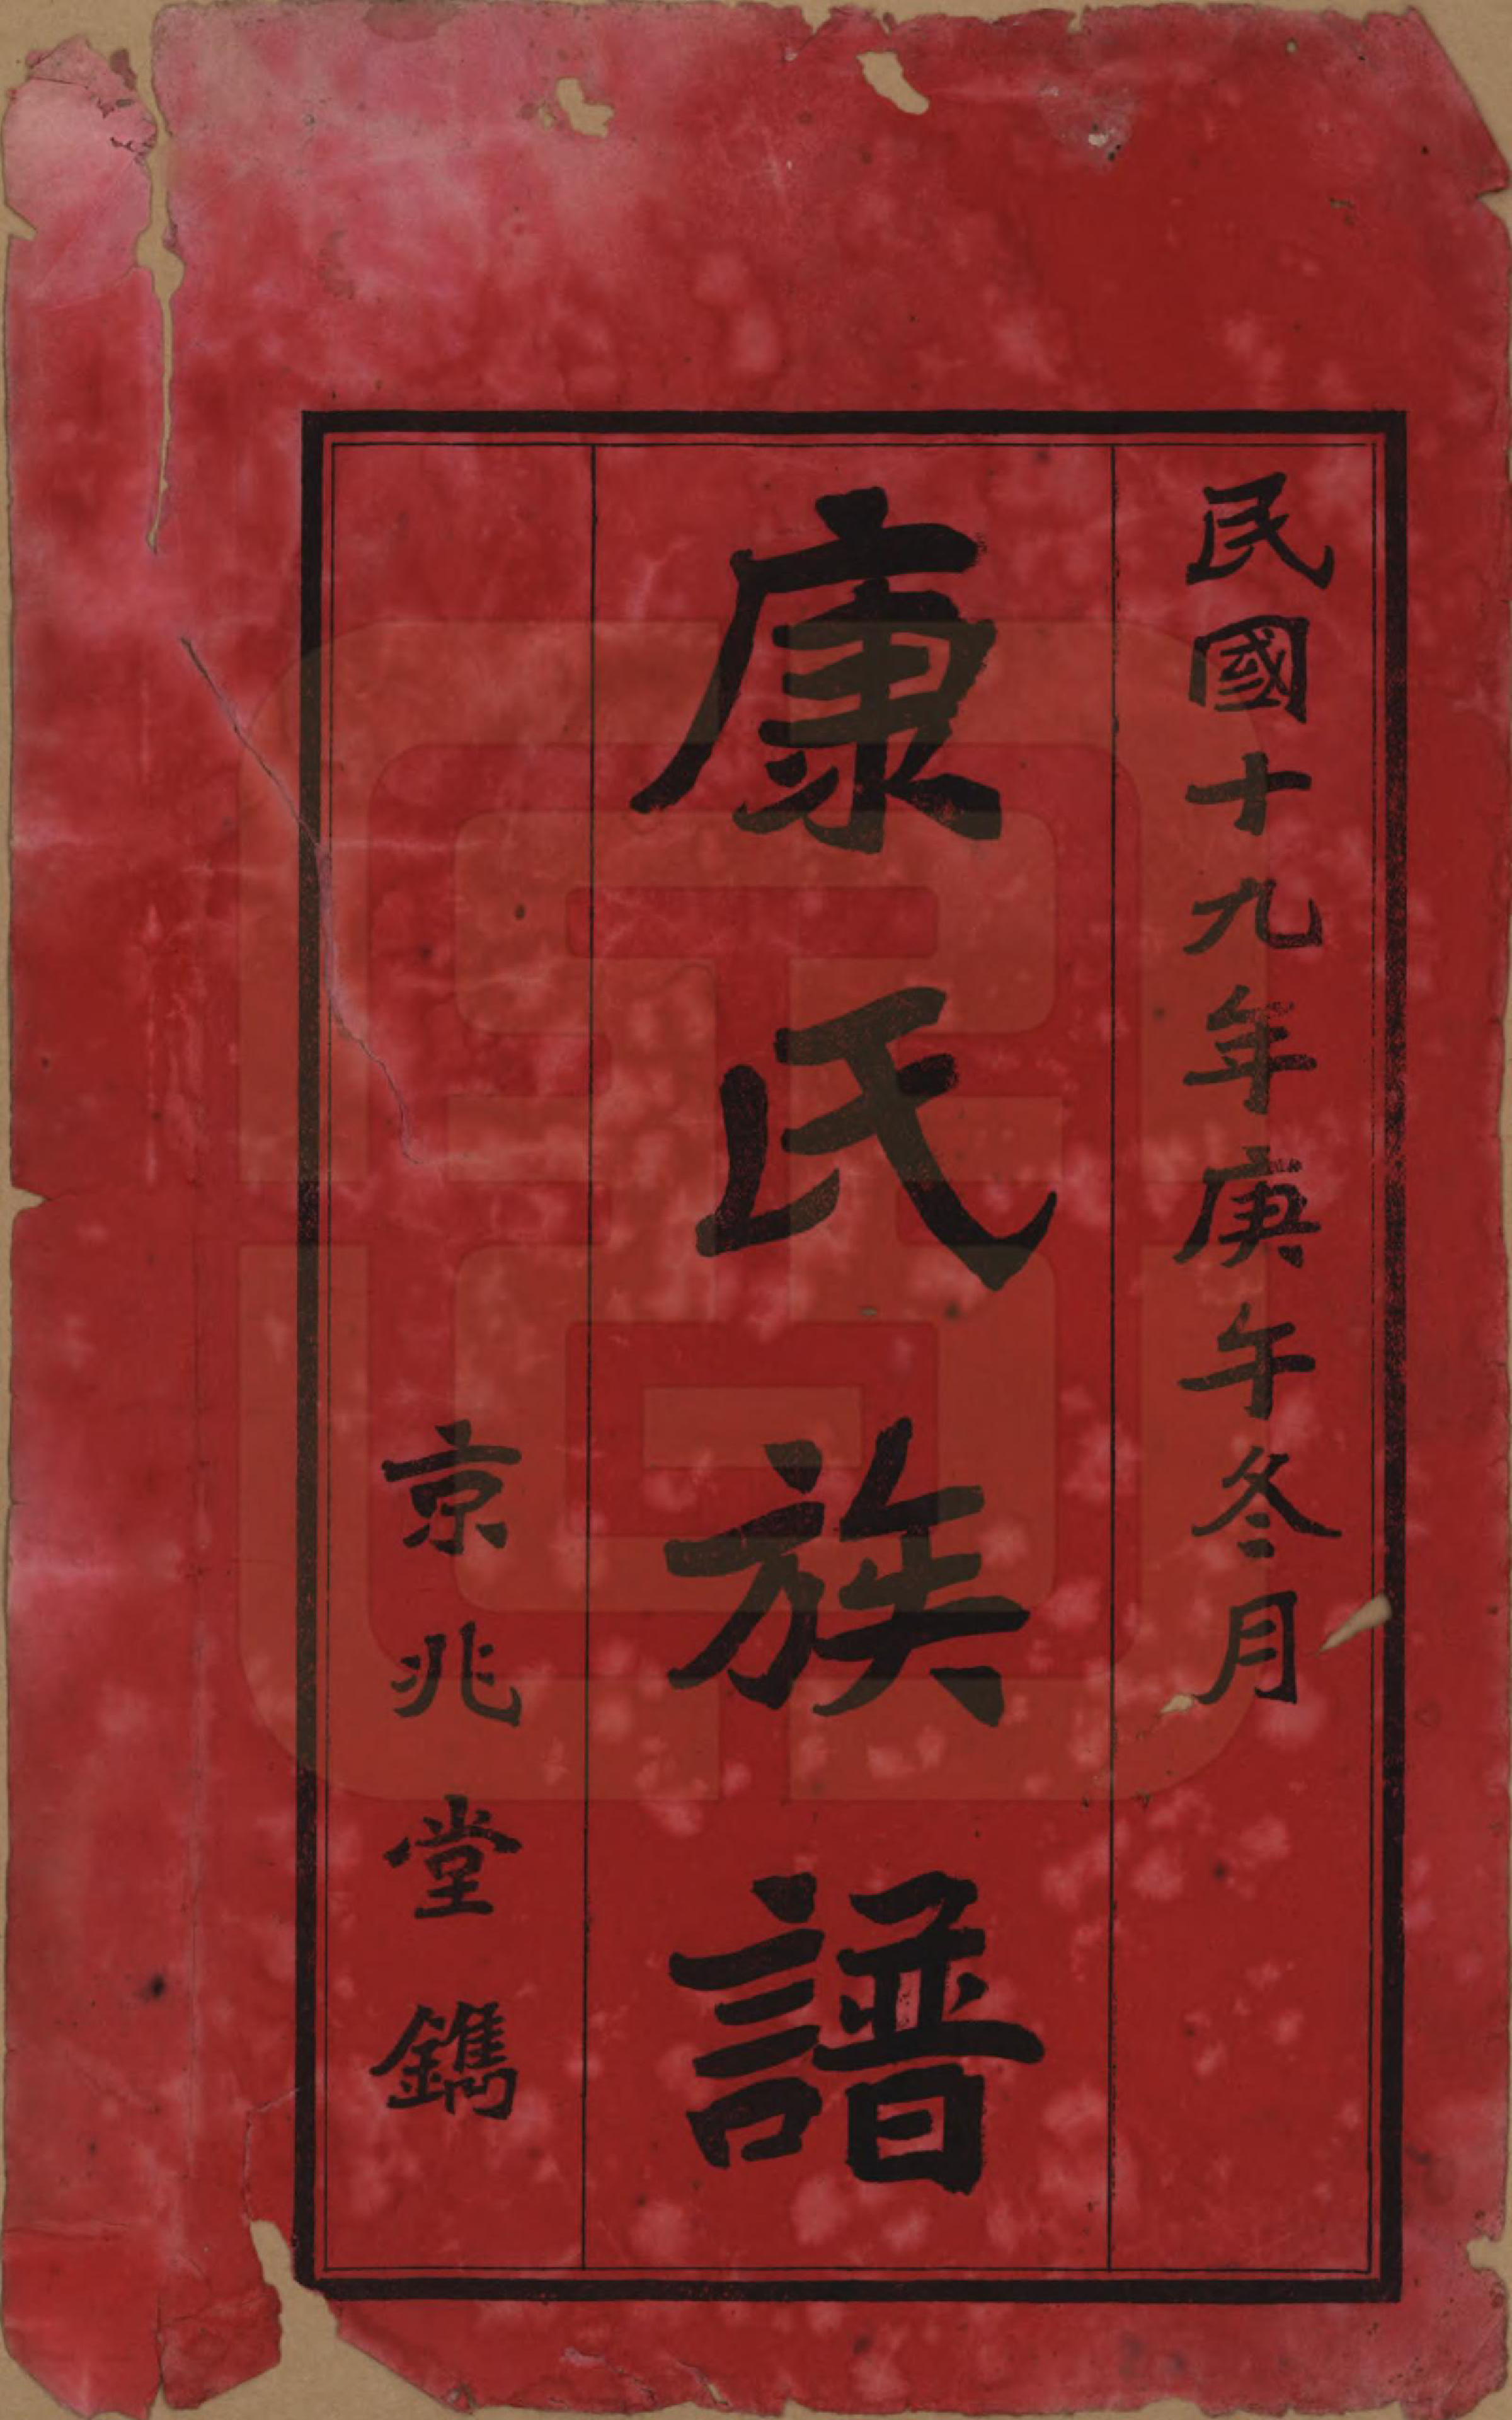 民國十九年庚午冬月
康氏族譜
京兆堂鐫